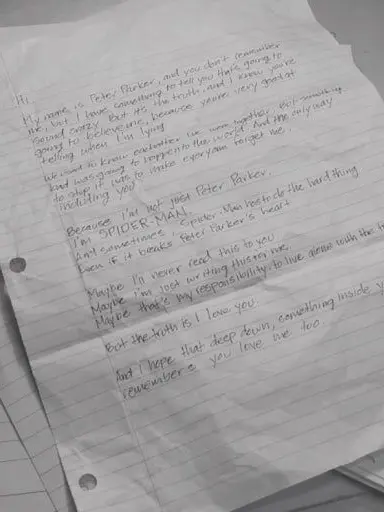 Hi,
My name is Peter Parker, and you don't remember
me, but I have something to tell you that's going to
sound crazy. But it's the truth, and I know you're
going to believe me, because you're very good at
telling when I'm lying.
We used to know eachother we were together. But something
bad was going to happen to the world. And the only way
to stop it was to make everyone forget me.
Including you.
Because I'm not just Peter Parker.
I'm SPIDER-MAN.
And sometimes Spider-Man has to do the hard thing
Even if it breaks Peter Parker's heart
Maybe I'll never read this to you
Maybe I'm just writing this for me.
Maybe that's my responsibility to live alone with the
But the truth is I love you.
And I hope that deep down, something inside
remembers you love me too.